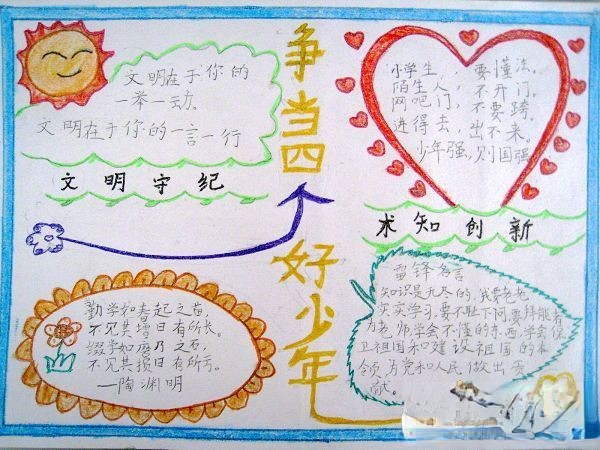 文明在于你的
一举一动。
文明在于你的一言一行
文明守纪
争当四好少年
小学生，，要懂法。
陌生人，不开门。
网吧门，不要跨。
进得去，出不来。
少年强，则国强
术知创新
勤学如春起之苗，
不见其增日有所长。
辍学如磨刀之石，
不见其损日有所亏。
—陶渊明
雷锋名言
知识是的，我要老老
实实学习，要不耻下问，要拜能者
为老师，学会不懂的东西，学会保
卫祖国和建设祖国的本
领，为党和人民做出贡
献。